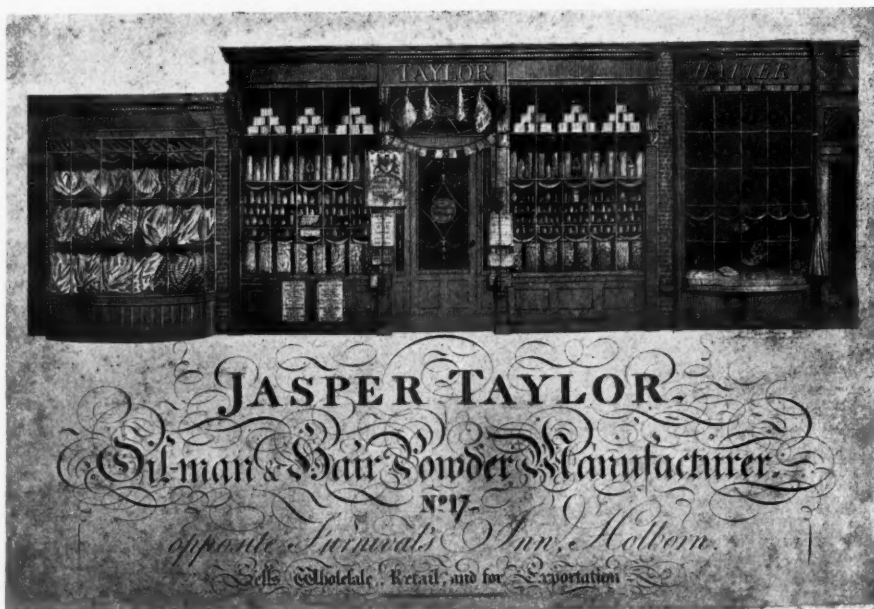 TAYLOR
HATTER
JASPER TAYLOR.
Oil-man & Hair Powder Manufacturer.
No. 17.
opposite Furnival's Inn, Holborn.
Sells Wholesale, Retail, and for Exportation